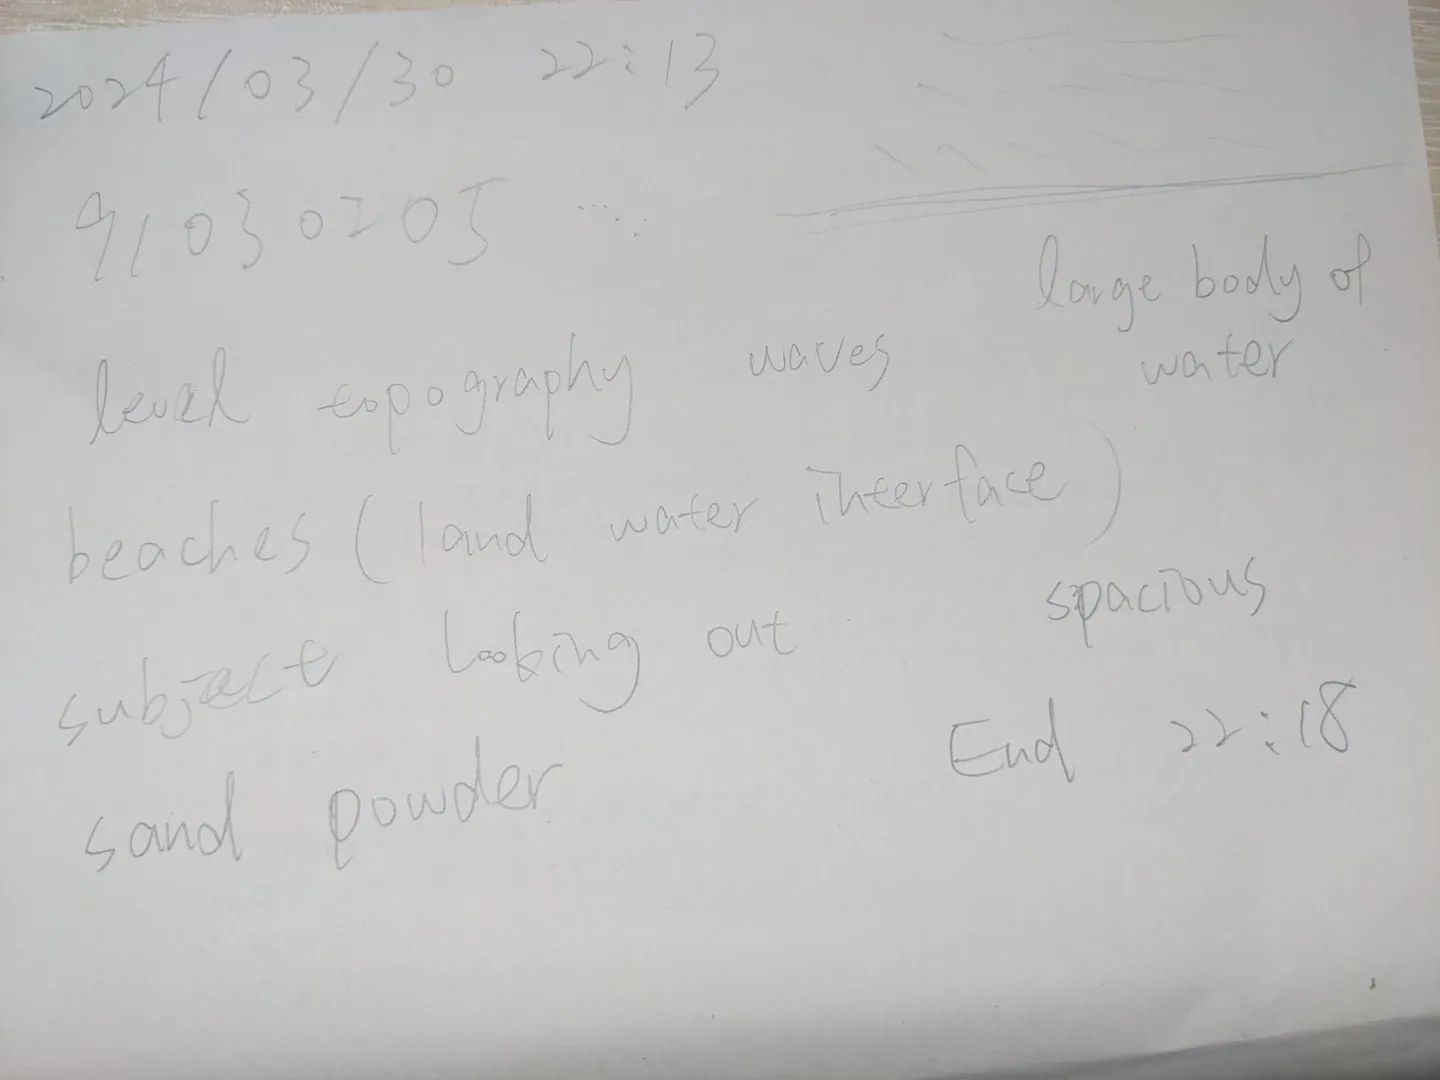 2024/03/30 22:13
91030205
large body of
water
level topography waves
beaches (land water interface)
subject looking out spacious
sand powder End 22:18